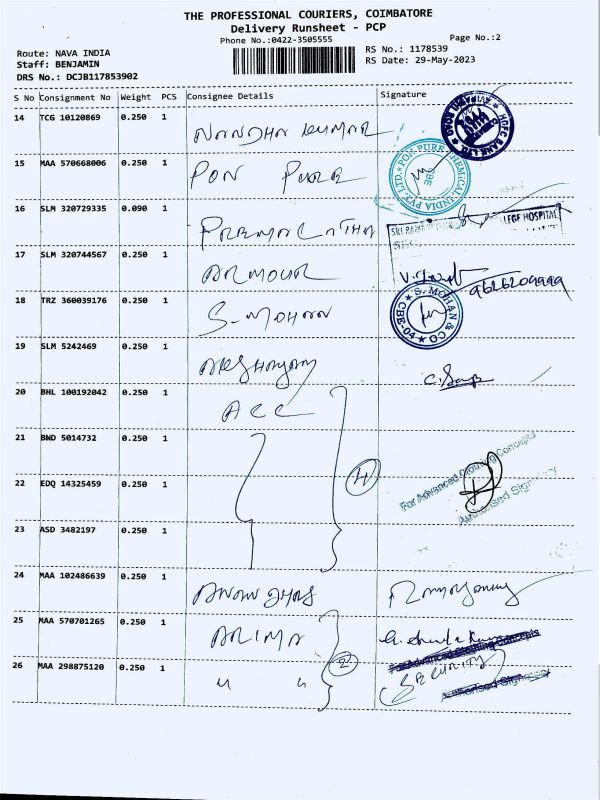 THE PROFESSIONAL COURIERS, COIMBATORE
Delivery Runsheet - PCP
Phone No.:0422-3505555
Page No.:2
Route: NAVA INDIA
Staff: BENJAMIN
DRS No.: DCJB117853902
RS No.: 1178539
RS Date: 29-May-2023
S No Consignment No Weight PCS Consignee Details Signature
14 TCG 10120869 0.250 1 NANDHA KUMAR
HDFC BANK LTD
15 MAA 570668006 0.250 1 PON PURE
PON PURE CHEMICAL INDIA PVT. LTD.
16 SLM 320729335 0.090 1 PREMALATHA
SRI RAMAKRISHNA HOSPITAL
17 SLM 320744567 0.250 1 ARMOUR
9626209999
18 TRZ 360039176 0.250 1 S-MOHAN
S. MOHAN & CO
CBE-04
19 SLM 5242469 0.250 1
20 BHL 100192042 0.250 1 ACC
21 BND 5014732 0.250 1
22 EDQ 14325459 0.250 1
4
For Advanced Clothing Concepts
Authorised Signatory
23 ASD 3482197 0.250 1
24 MAA 102486639 0.250 1
25 MAA 570701265 0.250 1 ARIMA
For Advanced Clothing Concepts
26 MAA 298875120 0.250 1 " "
2
SECURITY
Authorised Signatory